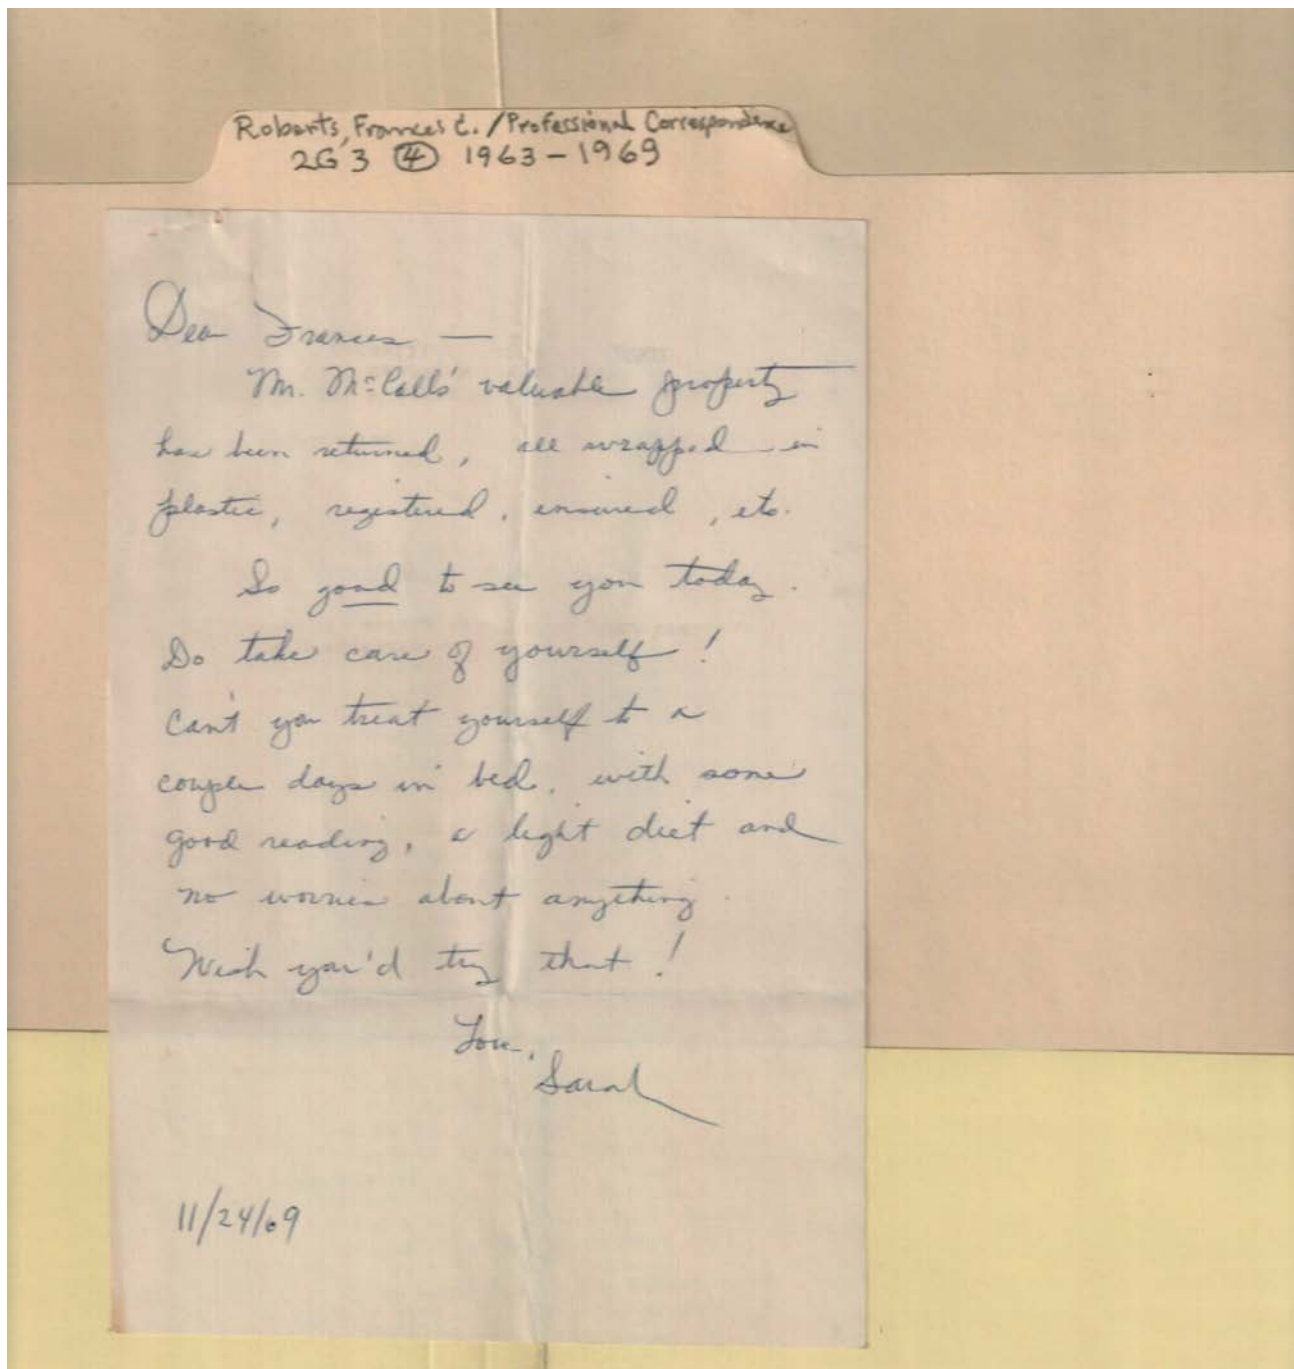 Roberts, Frances C. / Professional Correspondence
2G 3 ④ 1963-1969
Dear Frances —
Mr. McCall's valuable property
has been returned, all wrapped in
plastic, registered, insured, etc.
So good to see you today.
Do take care of yourself!
Can't you treat yourself to a
couple days in bed, with some
good reading, a light diet and
no worries about anything.
Wish you'd try that!
Love,
Sarah
11/24/69